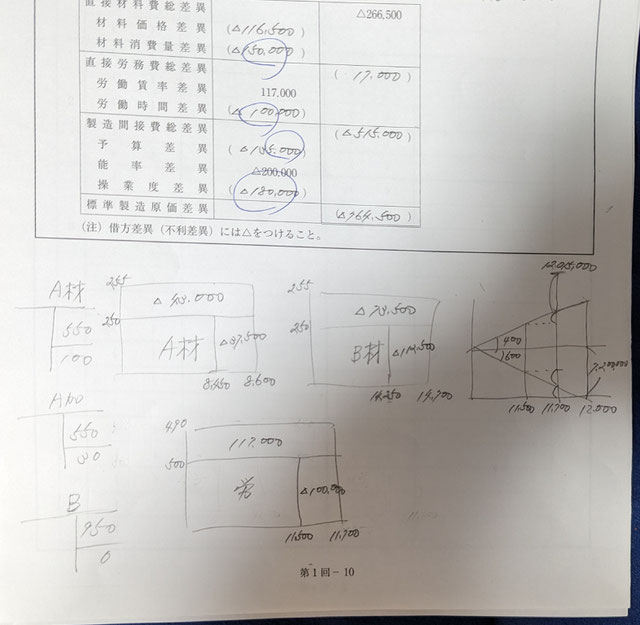 直接材料費総差異 △266,500
材料価格差異 (△116,500)
材料消費量差異 (△150,000)
直接労務費総差異 ( 17,000)
労働賃率差異 117,000
労働時間差異 (△100,000)
製造間接費総差異 (△515,000)
予算差異 (△135,000)
能率差異 △200,000
操業度差異 (△180,000)
標準製造原価差異 (△764,500)
(注) 借方差異(不利差異)には△をつけること。
A材
550
100
255
△43,000
250
A材
△37,500
8,450 8,600
255
△73,500
250
B材
△112,500
14,250 14,700
12,015,000
400
600
7,200,000
11,500 11,700 12,000
A加
550
30
490
117,000
500
労
△100,000
11,500 11,700
B
950
0
第1回-10